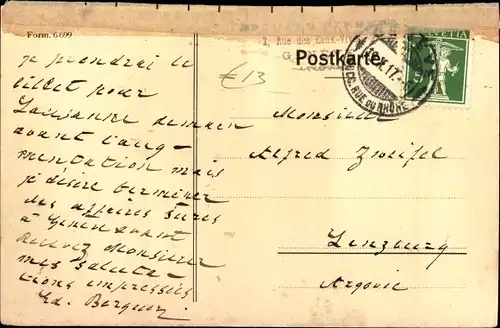 Form. 6699
2, Rue des
Postkarte
HELVETIA
5
RUE DU RHÔNE
£13
je prendrai le
billet pour
Lausanne demain
avant l'aug-
mentation mais
je désire terminer
des affaires
à Genève avant
Recevez Monsieur
mes saluta-
tions empressées
Ed.
Monsieur
Alfred Zweifel
Lenzburg
Argovie